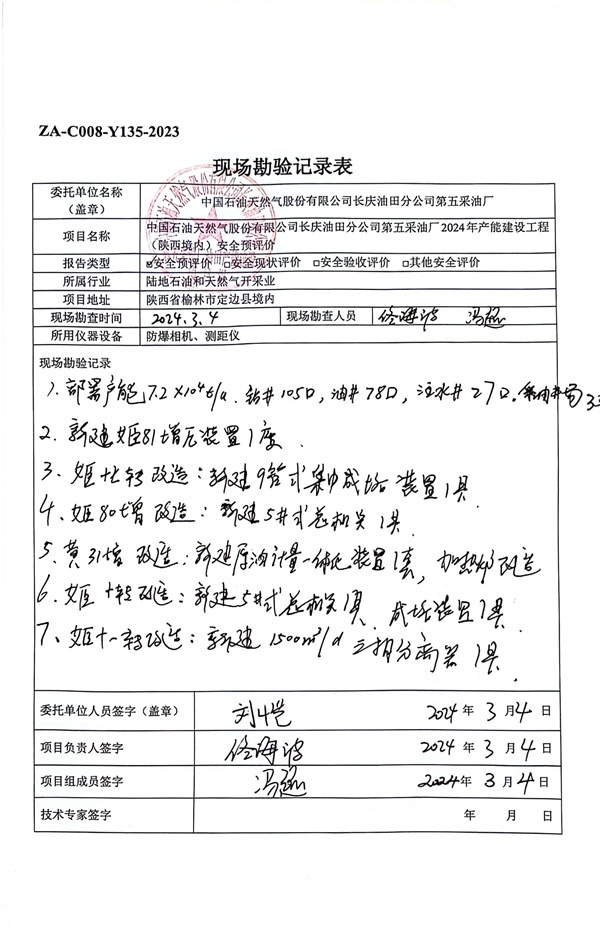 ZA-C008-Y135-2023
现场勘验记录表
委托单位名称
（盖章）
中国石油天然气股份有限公司长庆油田分公司第五采油厂
项目名称
中国石油天然气股份有限公司长庆油田分公司第五采油厂2024年产能建设工程
（陕西境内）安全预评价
报告类型 ☑安全预评价 □安全现状评价 □安全验收评价 □其他安全评价
所属行业 陆地石油和天然气开采业
项目地址 陕西省榆林市定边县境内
现场勘查时间 2024.3.4 现场勘查人员 佟海波 冯超
所用仪器设备 防爆相机、测距仪
现场勘验记录
1、部署产能7.2×10⁴t/a. 钻井105口，油井78口，注水井27口.采油井场33
2、新建姬81增压装置1座.
3、姬十七转改造：新建9管式集中成橇装置1具
4、姬80增改造：新建5井式总机关1具.
5、黄31增改造：新建原油计量一体化装置1套，加热炉改造
6、姬十转改造：新建5井式总机关1具、成橇装置1具.
7、姬十一转改造：新建1500m³/d三相分离器1具.
委托单位人员签字（盖章） 2024年3月4日
项目负责人签字 佟海波 2024年3月4日
项目组成员签字 冯超 2024年3月4日
技术专家签字 年 月 日